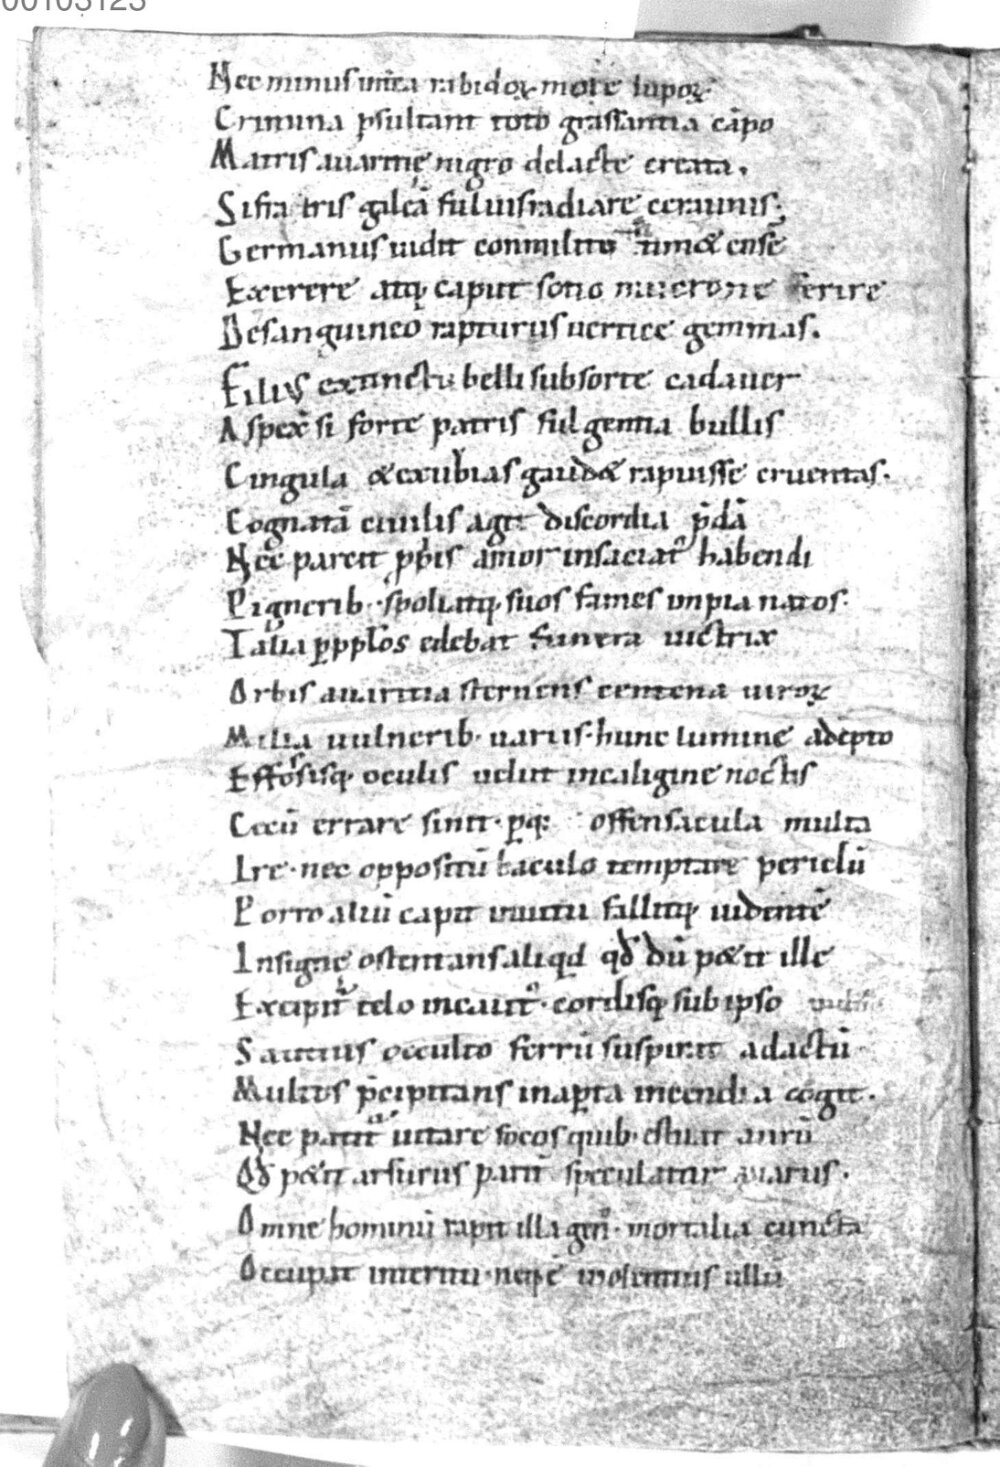 00103123
Nec minus int̄ea rabidoꝝ more lupoꝝ.
Crimina p̄sultant toto grassantia cāpo
Matris auaritię nigro delacte creata.
Si fra tris galeā fuluis radiare ceraunis;
Germanus uidit conmilito timet ensē
Exerere atq; caput socio mucrone ferire
De sanguineo rapturus uertice gemmas.
Filius extinctū belli sub sorte cadauer
Aspex̄ si forte patris fulgentia bullis
Cingula & exubias gaudet rapuisse cruentas.
Cognatā ciuilis agit discordia p̄dā
Nec parcit ppiis amor insaciatꝰ habendi
Pignerib; spoliatq; suos fames impia natos.
Talia p̱pp̄los edebat funera uictrix
Orbis auaritia sternens centena uiroꝝ
Milia uulnerib; uariis. hunc lumine adēpto
Effossisq; oculis uelut incaligine noctis
Cecū errare sinit. p̱q; offensacula multa
Ire. nec oppositū baculo temptare periclū
Porro aliū capit intuitu fallitq; uidentē
Insigne ostentans aliqd qđ dū petit ille
Excipit̄ telo incautꝰ. cordisq; sub ipso
Saucius occulto ferrū suspirat adactū
Multos p̄cipitans inap̱ta incendia cogit.
Nec patit̄ uitare focos quib; estuat aurū
Qđ petit arsurus parit̄ speculatur auarus.
Omne hominū rapit illa genꝰ. mortalia cuncta
Occupat interitu. neq; ē uiolentius ullū